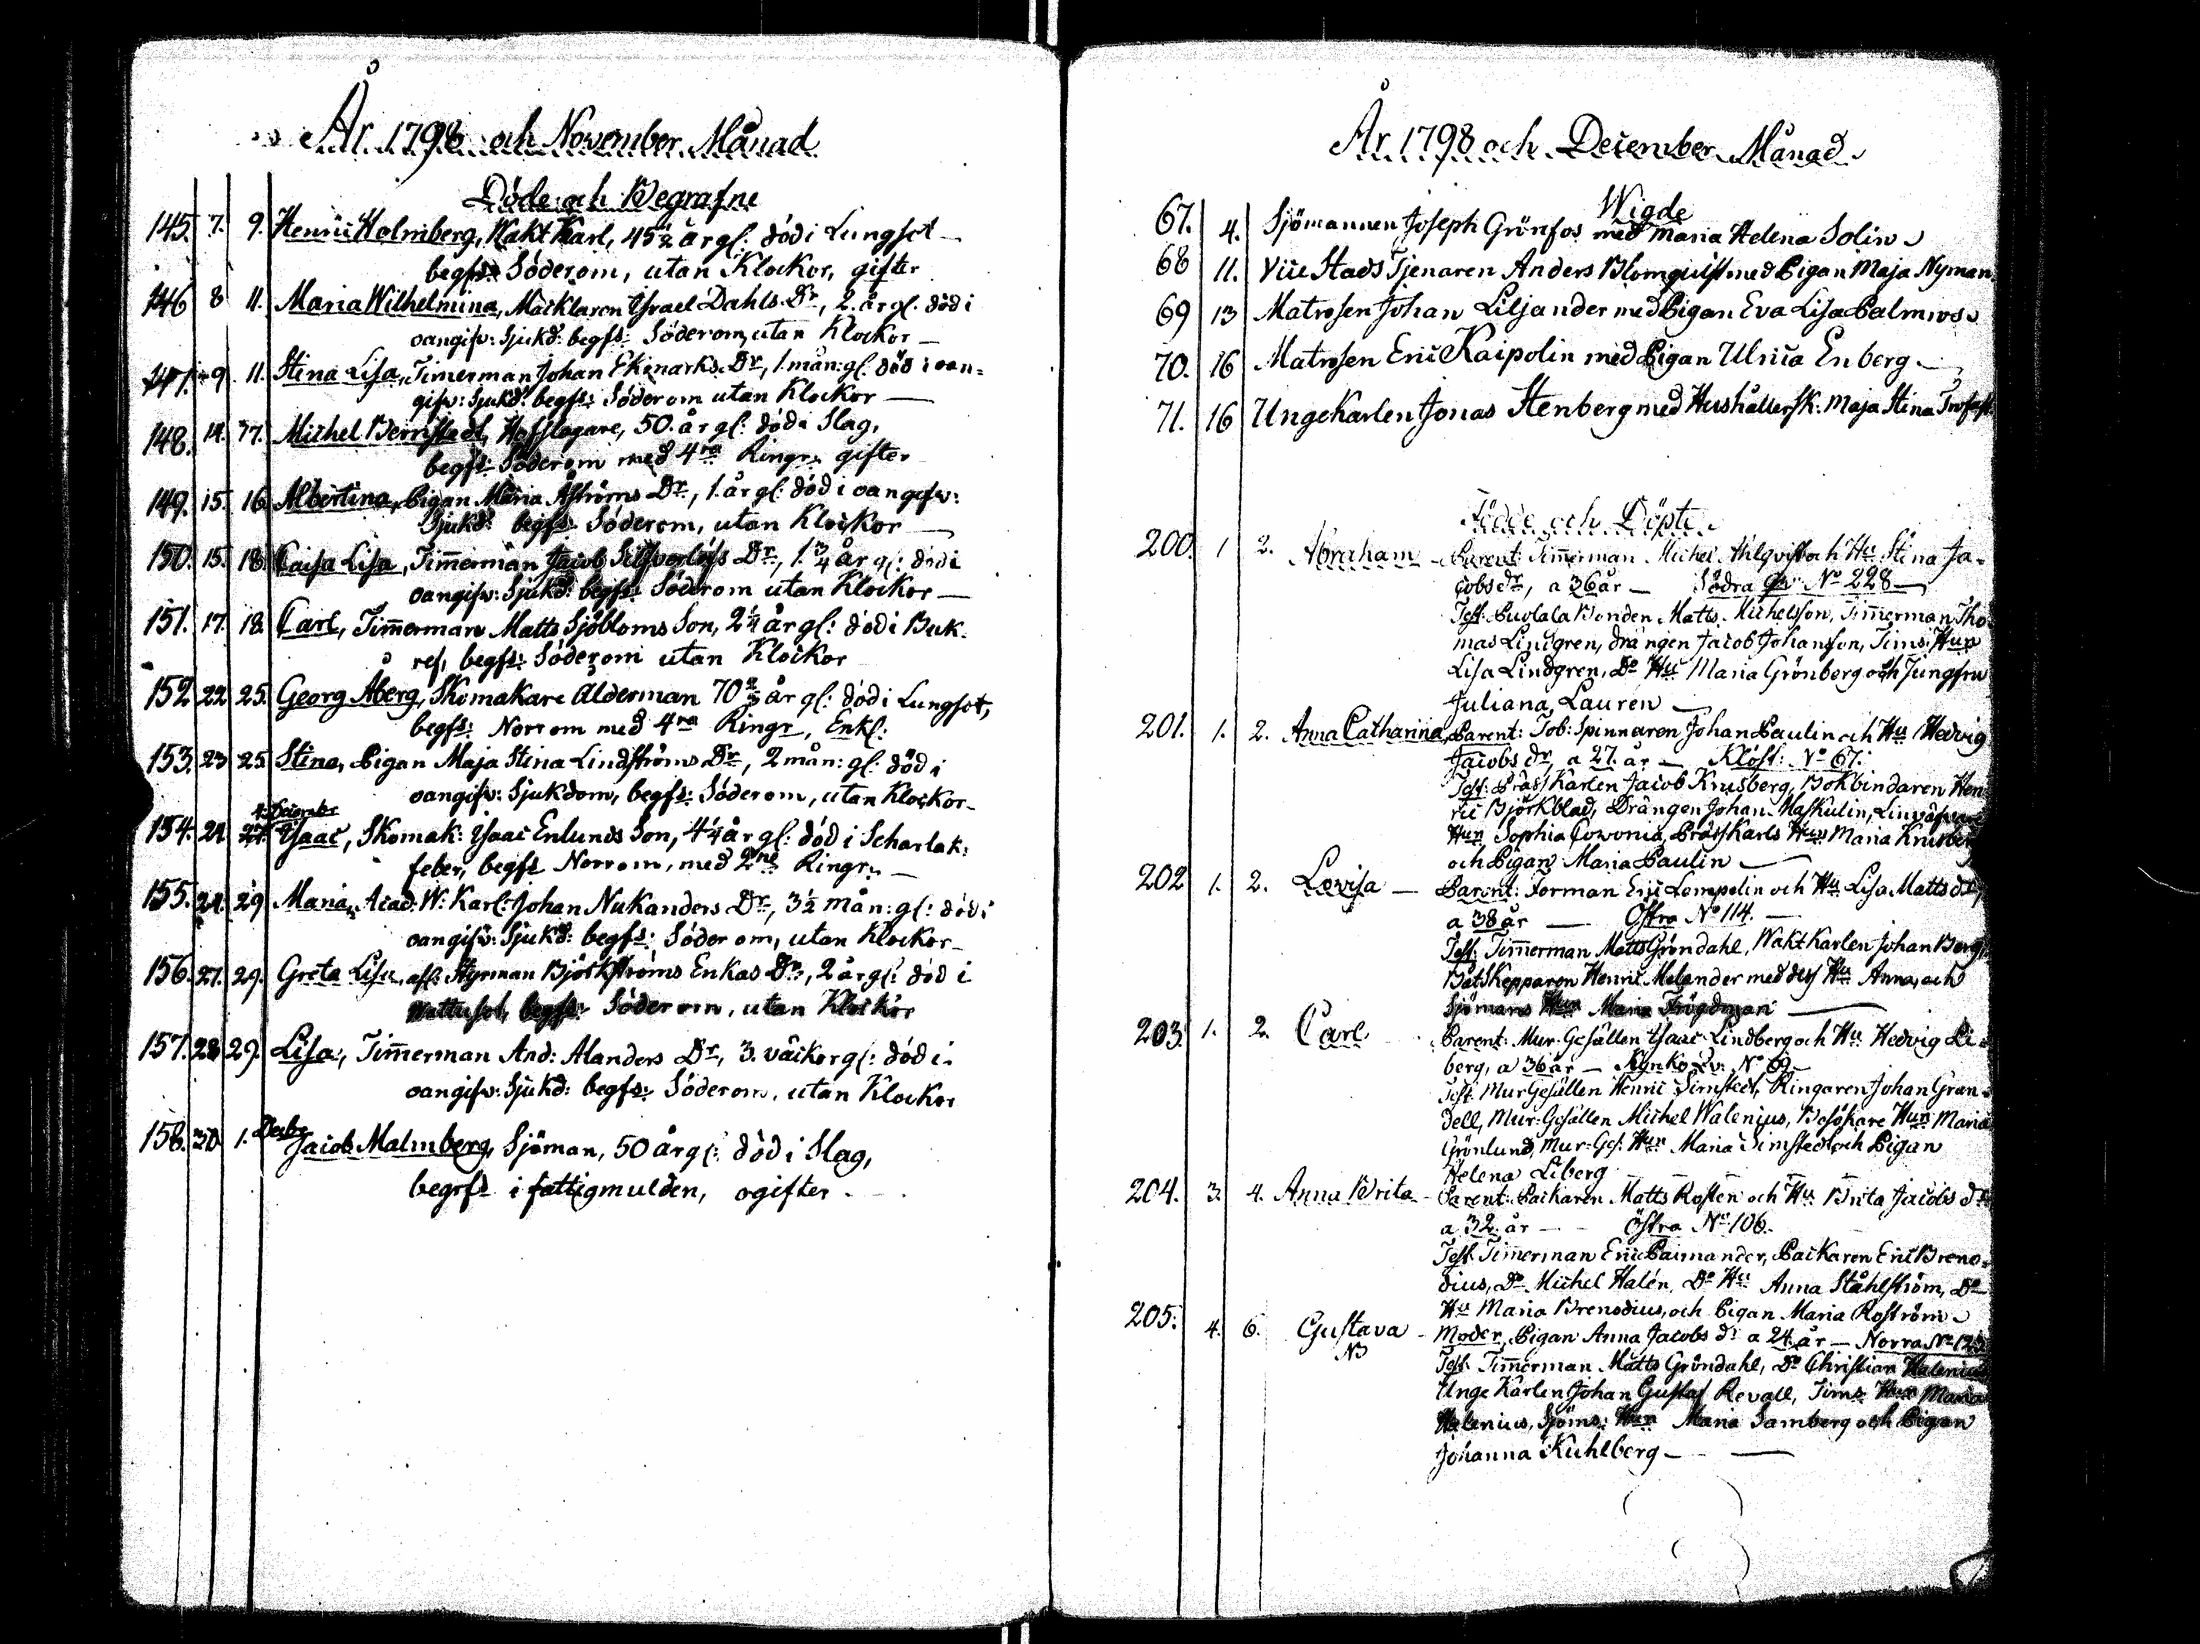 År 1798 och November Månad
Döde och Begrafne
145. 7. 9. Henric Holmberg, Wakt Karl, 45 1/2 år gl: död i Lungsot
begfs: Söderom, utan Klockor, gifter
146 8 11. Maria Wilhelmina, Mäcklaren Israel Dahls Dr, 2. år gl. död i
oangifw: Sjukd: begfs: Söderom, utan Klockor
147. 9. 11. Stina Lisa, Timerman Johan Ekmarks Dr, 1. mån: gl: död i oan=
gifw: Sjukd: begfs: Söderom utan Klockor
148. 14. 17. Michel Bernstedt, Hofslagare, 50. år gl: död i Slag,
begfs: Söderom med 4ra Ringr. gifter
149. 15. 16. Albertina, Pigan Maria Åströms Dr, 1. år gl: död i oangifw:
Sjukd: begfs: Söderom, utan Klockor
150. 15. 18. Caisa Lisa, Timmerman Jacob Dr, 1. 3/4 år gl: död i
oangifw: Sjukd: begfs: Söderom utan Klockor
151. 17. 18. Carl, Timmerman Matts Sjöbloms Son, 2 1/4 år gl: död i Buk.
ref, begfs: Söderom utan Klockor
152 22 25. Georg Åberg, Skomakare Ålderman 70 2/3 år gl: död i Lungsot,
begfs: Norrom med 4ra Ringr, Enkl:
153. 23 25. Stina, Pigan Maja Stina Lindströms Dr, 2 mån: gl: död i
oangifw: Sjukdom, begfs: Söderom, utan Klockor
4. December
154. 24. 27. Ysaac, Skomak: Ysaac Enlunds Son, 4 1/4 år gl: död i Scharlak:
feber, begfs Norrom, med 2ne Ringr.
155. 24. 29 Maria, Acad: W: Karl: Johan Nukanders Dr, 3 1/2 mån: gl: död i
oangifw: Sjukd: begfs: Söderom, utan Klockor
156. 27. 29. Greta Lisa, afl: Styrman Björkströms Enkas Dr, 2 år gl: död i
Wattusot, begfs: Söderom, utan Klockor
157. 28 29. Lisa, Timmerman And: Alanders Dr, 3. väckor gl: död i
oangifw: Sjukd: begfs: Söderom, utan Klockor
Decbr
158. 30 1. Jacob Malmberg, Sjöman, 50 år gl: död i Slag,
begrfs i fattigmulden, ogifter
År 1798 och December Månad
Wigde
67. 4. Sjömannen Joseph Grönfos med Maria Helena Solin
68 11. Vice Stads Tjenaren Anders Blomqvist med Pigan Maja Nyman
69 13 Matrosen Johan Liljander med Pigan Eva Lisa Palmros
70. 16 Matrosen Eric Kaipolin med Pigan Ulrica Enberg
71. 16 Unge Karlen Jonas Stenberg med Hushållersk: Maja Stina
Födde och Döpte
200. 1 2. Abraham Parent: Timmerman Michel Ahlqvist och Hu Stina Ja=
cobsdr, a 36 år — Södra Qv: No 228
Test. Puolala Bonden Matts Michelsson, Timmerman Tho
mas Lindgren, drängen Jacob Johansson, Tims: Hun
Lisa Lindgren, Do Hu Maria Grönberg och Jungfru
Juliana Lauren
201. 1. 2. Anna Catharina, Parent: Tob: Spinnaren Johan Paulin och Hu Hedvig
Jacobs dr, a 27. år — Klöst: No 67.
Test: Bräst Karlen Jacob Krusberg, Bokbindaren Hen
ric Björkblad, Drängen Johan Maskulin,
Hun Sophia Cowonia, Bräst Karls Hun Maria Krusberg
och Pigan Maria Paulin
202 1. 2. Lovisa — Parent: Forman Eric Lempelin och Hu Lisa Matts dr,
a 38 år — Östra No 114.
Test: Timmerman Matts Gröndahl, Wakt Karlen Johan Berg,
Båtskepparen Henric Melander med dess Hu Anna, och
Sjömans Hun Maria
203. 1. 2. Carl Parent: Mur-Gesällen Ysaac Lindberg och Hu Hedvig Li
berg, a 36 år — Qv: No 69.
Test. Mur Gesällen Henric Simstedt, Ringaren Johan Gran=
dell, Mur-Gesällen Michel Walenius, Besökare Hun Maria
Grönlund, Mur-Ges: Hun Maria Simstedt och Pigan
Helena Liberg
204. 3. 4. Anna Brita — Parent: Packaren Matts Rosten och Hu Brita Jacobs dr
a 32. år — Östra No 106.
Test: Timmerman Eric Paimander, Packaren Eric Breno=
dius, Do Michel Halén, Do Hu Anna Ståhlström, Do
Hu Maria Brenodius, och Pigan Maria Roström
205. 4. 6. Gustava — Moder, Pigan Anna Jacobs dr a 24 år — Norra No 123
N3
Test: Timmerman Matts Gröndahl, Do Christian Halenius
Unge Karlen Johan Gustaf Revall, Tims: Hun Maria
Halenius, Sjöms: Hun Maria Tamberg och Pigan
Johanna Kuhlberg